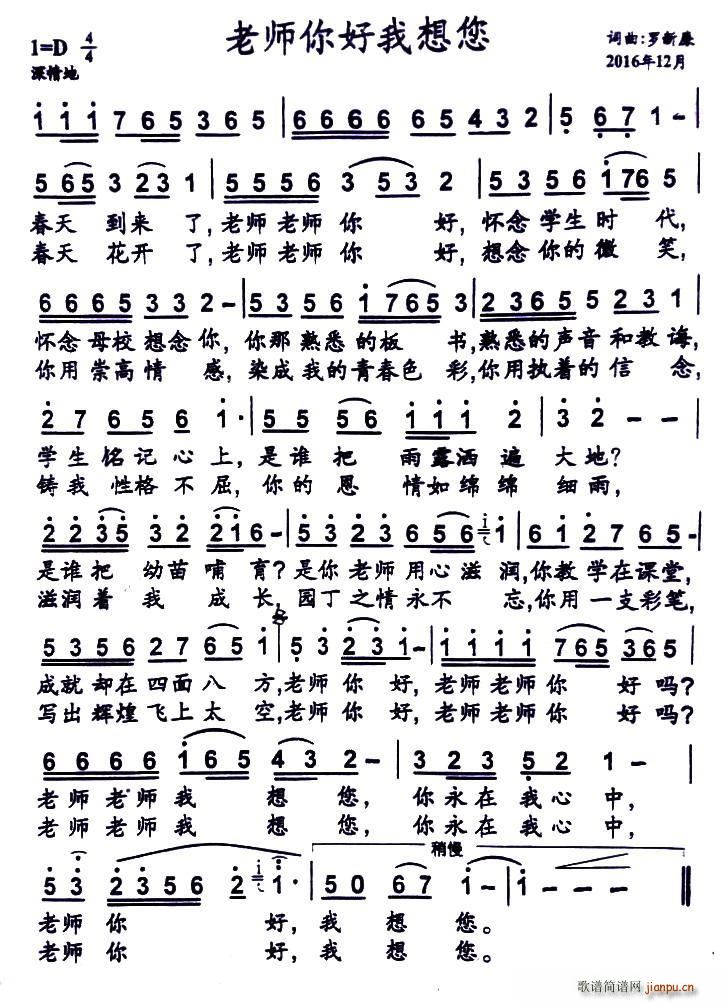 老师你好我想您
1=D 4/4
词曲:罗新廉
深情地
2016年12月
1 1 1 7 6 5 3 6 5 | 6 6 6 6 6 5 4 3 2 | 5 6 7 1 –
5 6 5 3 2 3 1 | 5 5 5 6 3 5 3 2 | 5 3 5 6 1 7 6 5
春天 到来 了,老师老师你 好,怀念学生时 代,
春天 花开 了,老师老师你 好,想念你的微 笑,
6 6 6 5 3 3 2 – | 5 3 5 6 1 7 6 5 3 | 2 3 6 5 5 2 3 1
怀念 母校想念你, 你那熟悉的板 书,熟悉的声音和教诲,
你用崇高情 感, 染成我的青春色 彩,你用执着的信 念,
2 7 6 5 6 1· | 5 5 5 6 1 1 1 2 | 3 2 – –
学生 铭记心上,是谁把 雨露洒 遍 大地?
铸我 性格不屈,你的恩 情如绵绵 细雨,
2 2 3 5 3 2 2 1 6 – | 5 3 2 3 6 5 6 1 | 6 1 2 7 6 5 –
是谁把 幼苗哺 育?是你老师用心滋 润,你教学在课堂,
滋润着 我 成 长,园丁之情永不 忘,你用一支彩笔,
5 3 5 6 2 7 6 5 1 | 5 3 2 3 1 – | 1 1 1 1 7 6 5 3 6 5
成就却在四面八 方,老师你 好,老师老师你 好吗?
写出辉煌飞上太 空,老师你 好,老师老师你 好吗?
6 6 6 6 1 6 5 4 3 2 – | 2 2 2 3 5 2 1 –
老师老师我 想 您, 你永在我心中,
老师老师我 想 您, 你永在我心中,
稍慢
5 3 2 3 5 6 2 1 1· | 5 0 6 7 1 – | 1 – – –
老师你 好,我 想 您。
老师你 好,我 想 您。
歌谱简谱网
jianpu.cn